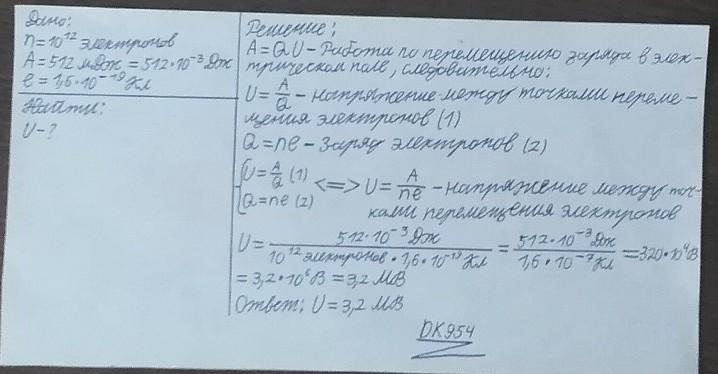 Дано:
n=10¹² электронов
A=512 мДж = 512·10⁻³ Дж
e=1,6·10⁻¹⁹ Кл
Найти:
U-?
Решение:
A=QU - Работа по перемещению заряда в элек-
трическом поле, следовательно:
U=A/Q - напряжение между точками переме-
щения электронов (1)
Q=ne - Заряд электронов (2)
{U=A/Q (1)
Q=ne (2) <=> U=A/ne - напряжение между точ-
ками перемещения электронов
U= 512·10⁻³ Дж / 10¹² электронов·1,6·10⁻¹⁹ Кл = 512·10⁻³ Дж / 1,6·10⁻⁷ Кл =320·10⁴ В
=3,2·10⁶ В = 3,2 МВ
Ответ: U=3,2 МВ
DK954